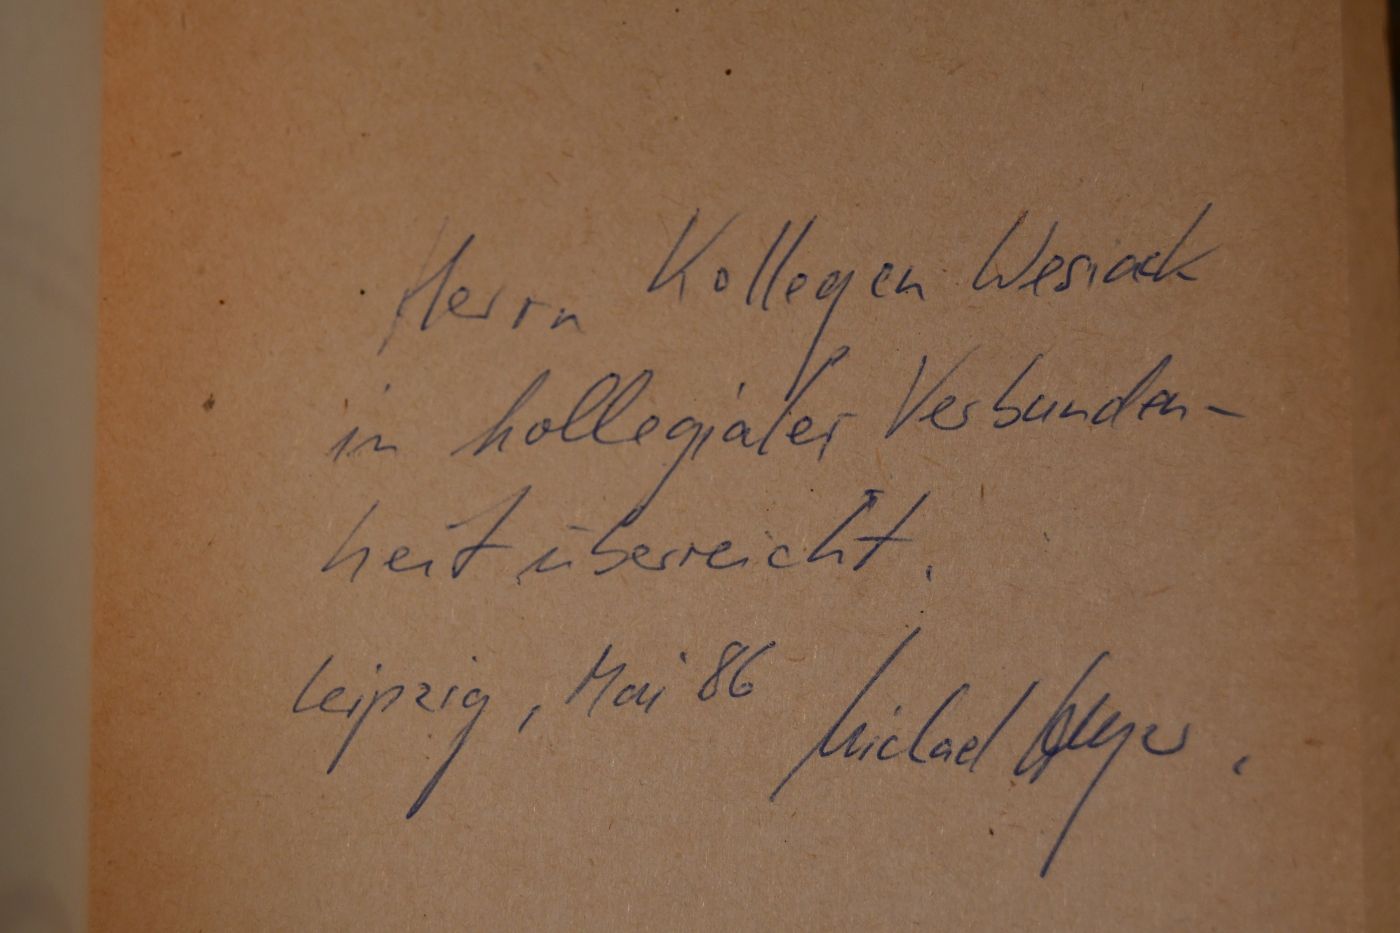 Herrn Kollegen Wesiack
in kollegialer Verbunden-
heit überreicht.
Leipzig, Mai 86 Michael